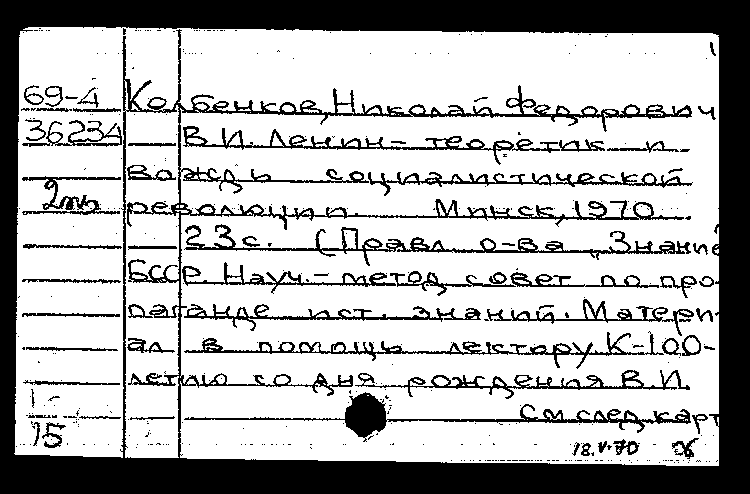 69-4 Колбенков, Николай Федорович
36234 В.И. Ленин - теоретик и
вождь социалистической
2пь революции. Минск, 1970.
23с. (Правл. о-ва „Знание
БССР. Науч.-метод. совет по про-
паганде ист. знаний. Матери-
ал в помощь лектору. К-100-
летию со дня рождения В.И.
См след карт
15
18.V.70